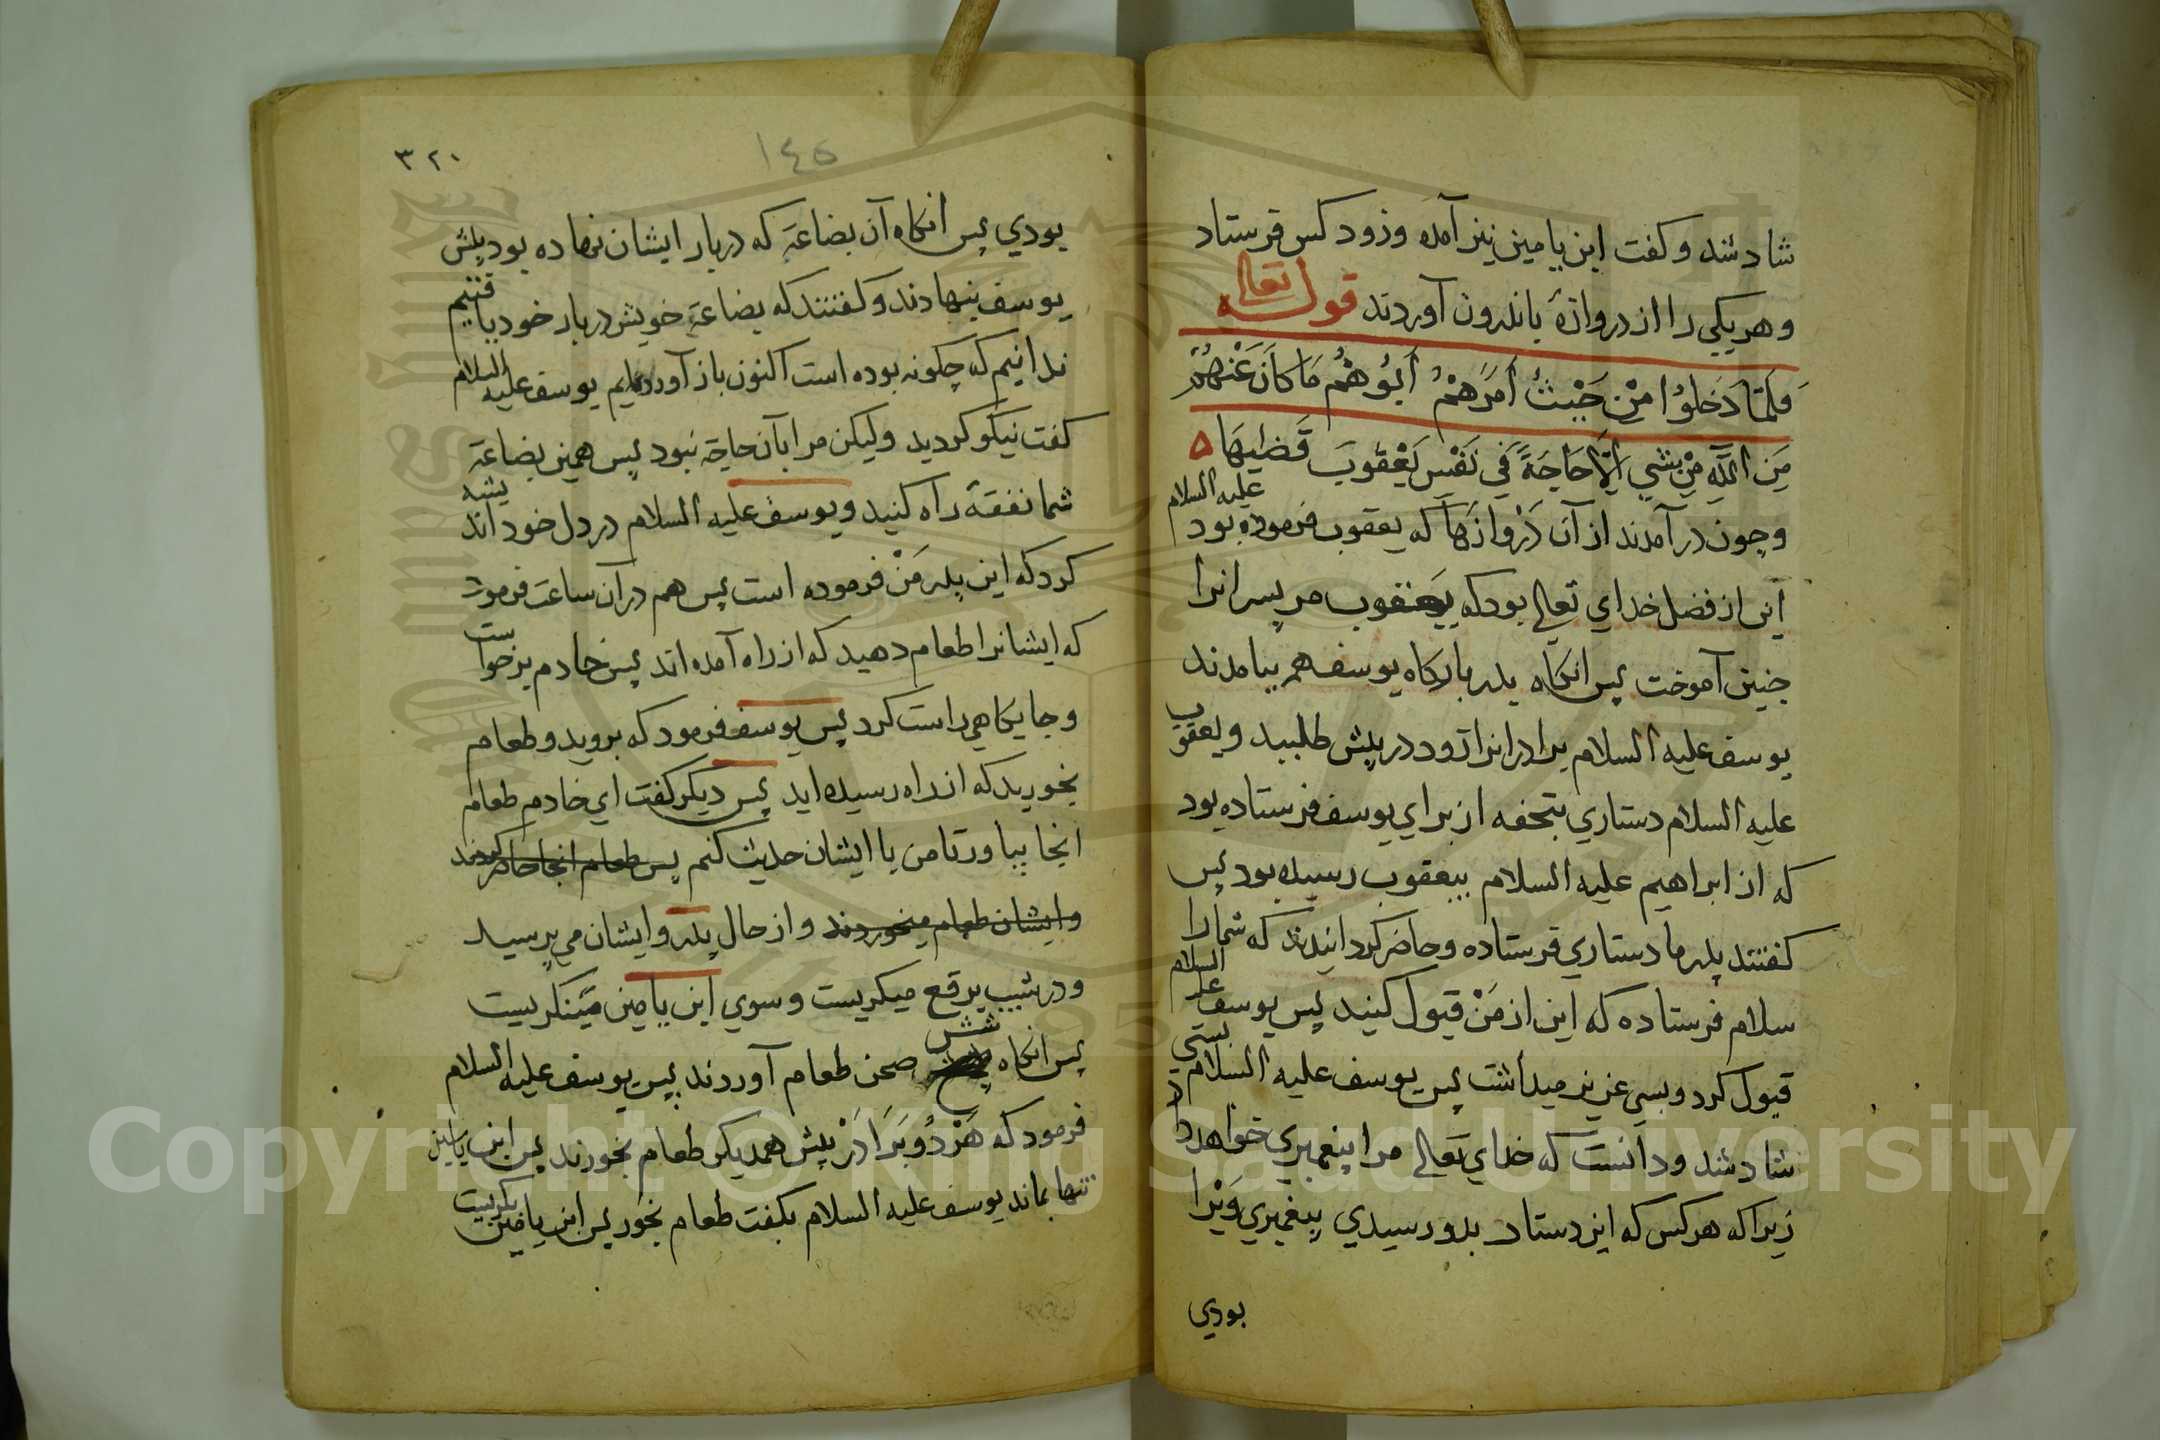 شاد شد و کفت ابن یامین نیز آمده و زود کس فرستاد
و هر یکی را از دروازۀ باندرون آوردند قوله تعالی
وَلَمَّا دَخَلُوا مِنْ حَيْثُ أَمَرَهُمْ أَبُوهُمْ مَا كَانَ عَنْهُمْ
مِنَ اللَّهِ مِنْ شَيْءٍ إِلَّا حَاجَةً فِي نَفْسِ يَعْقُوبَ قَضٰيهَا ۵
و چون در آمدند از آن دَرْوازَها که یعقوب علیه السلام فرموده بود
این از فضل خدای تعالی بود که یعقوب مر پسرانرا
چنین آموخت پس انکاه بدر بارکاه یوسف هم بیامدند
یوسف علیه السلام برادرانرا زود در پیش طلبید و یعقوب
علیه السلام دستاری بتحفه از برای یوسف فرستاده بود
که از ابراهیم علیه السلام بیعقوب رسیده بود پس
کفتند پدر ما دستاری فرستاده و حاضر کردانیدند که شما را
سلام فرستاده که این از مَنْ قبول کنید پس یوسف علیه السلام
قبول کرد و بسی عزیز میداشت پس یوسف علیه السلام بستی
شاد شد و دانست که خدای تعالی مرا پیغمبری خواهد داد
زیرا که هر کس که این دستار بدو رسیدی پیغمبری وَیْرا
بودی
۳۲۰
١٤٥
بودی پس انکاه آن بضاعة که در بار ایشان نهاده بود پیش
یوسف بنهادند و کفتند که بضاعة خویش در بار خود یافتیم
ندانیم که چکونه بوده است اکنون باز آورده‌ایم یوسف علیه السلام
کفت نیکو کردید ولیکن مرا بآن حاجة نبود پس همین بضاعة
شما نفقۀ راه کنید و یوسف علیه السلام در دل خود اندیشه
کرد که این پدر مَنْ فرموده است پس هم در آن ساعت فرمود
که ایشانرا طعام دهید که از راه آمده اند پس خادم برخواست
و جایکاهی راست کرد پس یوسف فرمود که بروید و طعام
بخورید که از راه رسیده اید پس دیکر کفت ای خادم طعام
انجا بیاور تا من با ایشان حدیث کنم پس طعام انجا حاضر کردند
و ایشان طعام میخوردند و از حال پدر و ایشان می پرسید
و در شیب برقع میکریست و سوی ابن یامین مینکریست
پس انکاه شش صحن طعام آوردند پس یوسف علیه السلام
فرمود که هَرْ دُو بَرَادَرْ پیش همدیکر طعام بخورند پس ابن یامین
تنها بماند یوسف علیه السلام بکفت طعام بخور پس ابن یامین بکریست
Copyright © King Saud University